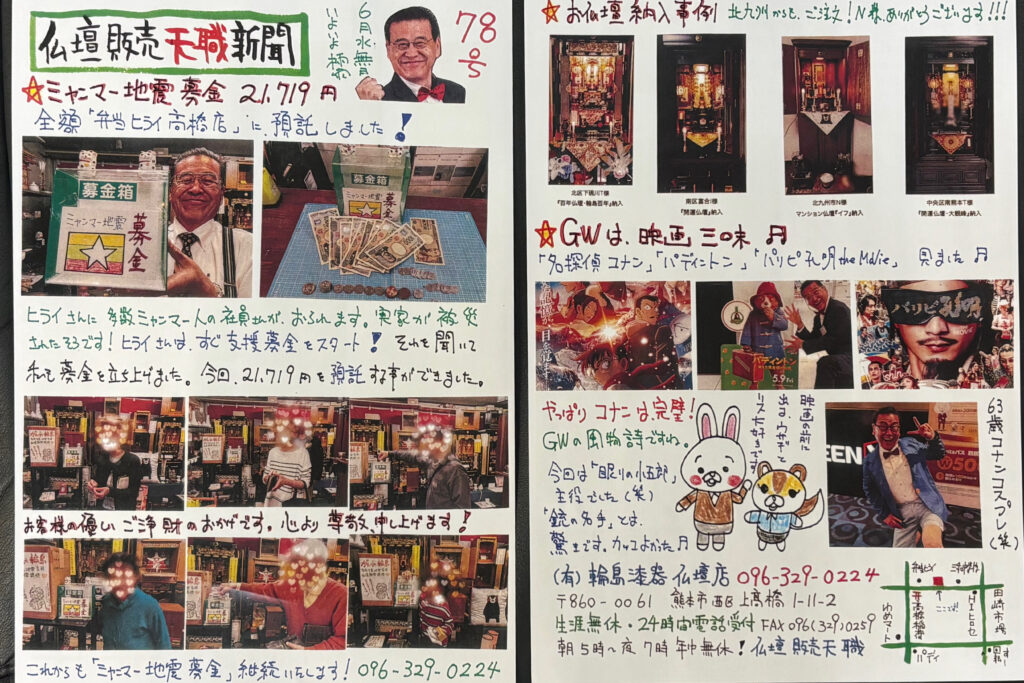 仏壇販売天職新聞
6月水無月
いよいよ梅雨
78号
☆ミャンマー地震募金 21,719円
全額「弁当ヒライ高橋店」に、預託しました!
募金箱
ミャンマー地震
募金
募金箱
ミャンマー地震
募金
ヒライさんに多数ミャンマー人の社員さんが、おられます。実家が被災
されたそうです!ヒライさんは、すぐ支援募金をスタート!それを聞いて
私も募金を立ち上げました。今回、21,719円を預託する事ができました。
お客様の優しいご浄財のおかげです。心より尊敬申し上げます!
これからも「ミャンマー地震募金」継続いたします! 096-329-0224
☆お仏壇納入事例 北九州からも、ご注文!N様、ありがとうございます!!!
北区下硯川T様
『百年仏壇・輪島百年』納入
南区富合I様
『開運仏壇』納入
北九州市N様
マンション仏壇『イフ』納入
中央区南熊本T様
『開運仏壇・大銀峰』納入
☆GWは、映画三昧♬
「名探偵コナン」「パディントン」「パリピ孔明 the Movie」 見ました♬
パディントン
5.9 Fri
パリピ孔明
やっぱりコナンは完璧!
GWの風物詩ですね。
今回は「眠りの小五郎」
主役でした(笑)
「銃の名手」とは、
驚きです。カッコよかった♬
映画の前に
出る、ウサギと
リス大好きです
63歳コナンコスプレ(笑)
(有)輪島漆器仏壇店 096-329-0224
〒860-0061 熊本市西区上高橋1-11-2
生涯無休・24時間電話受付 FAX096(329)0259
朝5時〜夜7時年中無休!仏壇販売天職
弁当ヒライ
ここです!
井高橋稲荷
HIヒロセ
田崎市場
ゆめマート
パディ